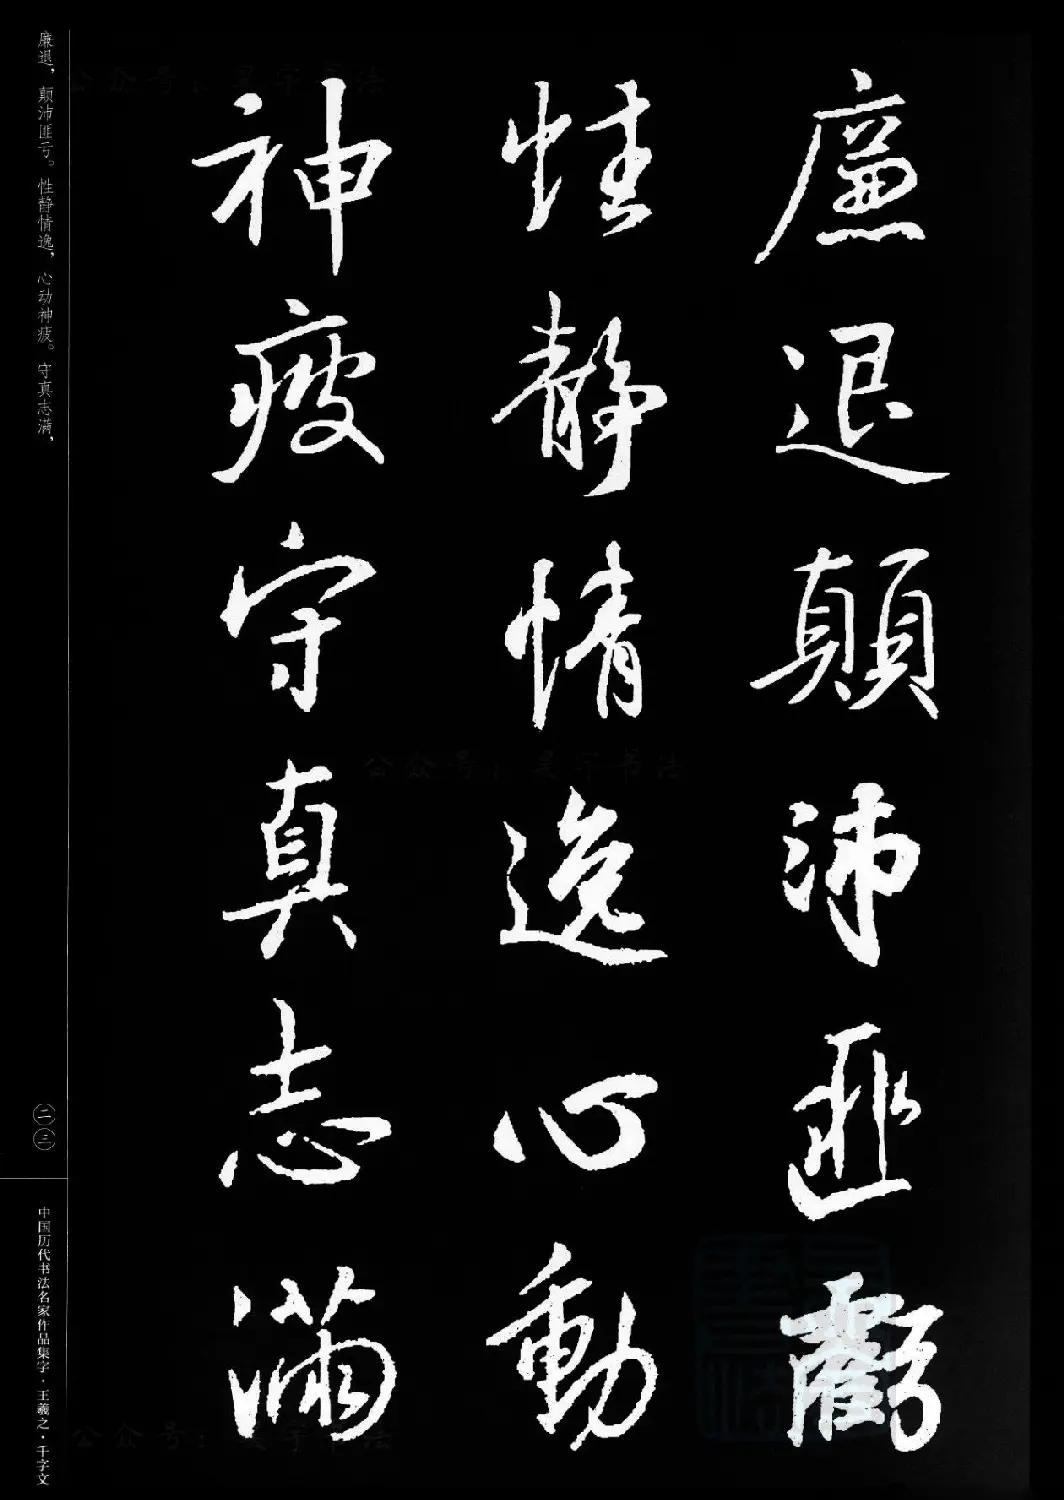 廉退顛沛匪虧
性靜情逸心動
神疲守真志滿
廉退，颠沛匪亏。性静情逸，心动神疲。守真志满，
二三
中国历代书法名家作品集字·王羲之·千字文